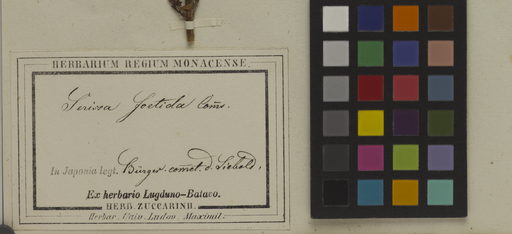 HERBARIUM REGIUM MONACENSE.
Serissa foetida Coms.
In Japonia legt. Bürger comēt. d. Siebold.
Ex herbario Lugduno-Batavo.
HERB. ZUCCARINII.
Herbar. Univ. Ludov. Maximil.